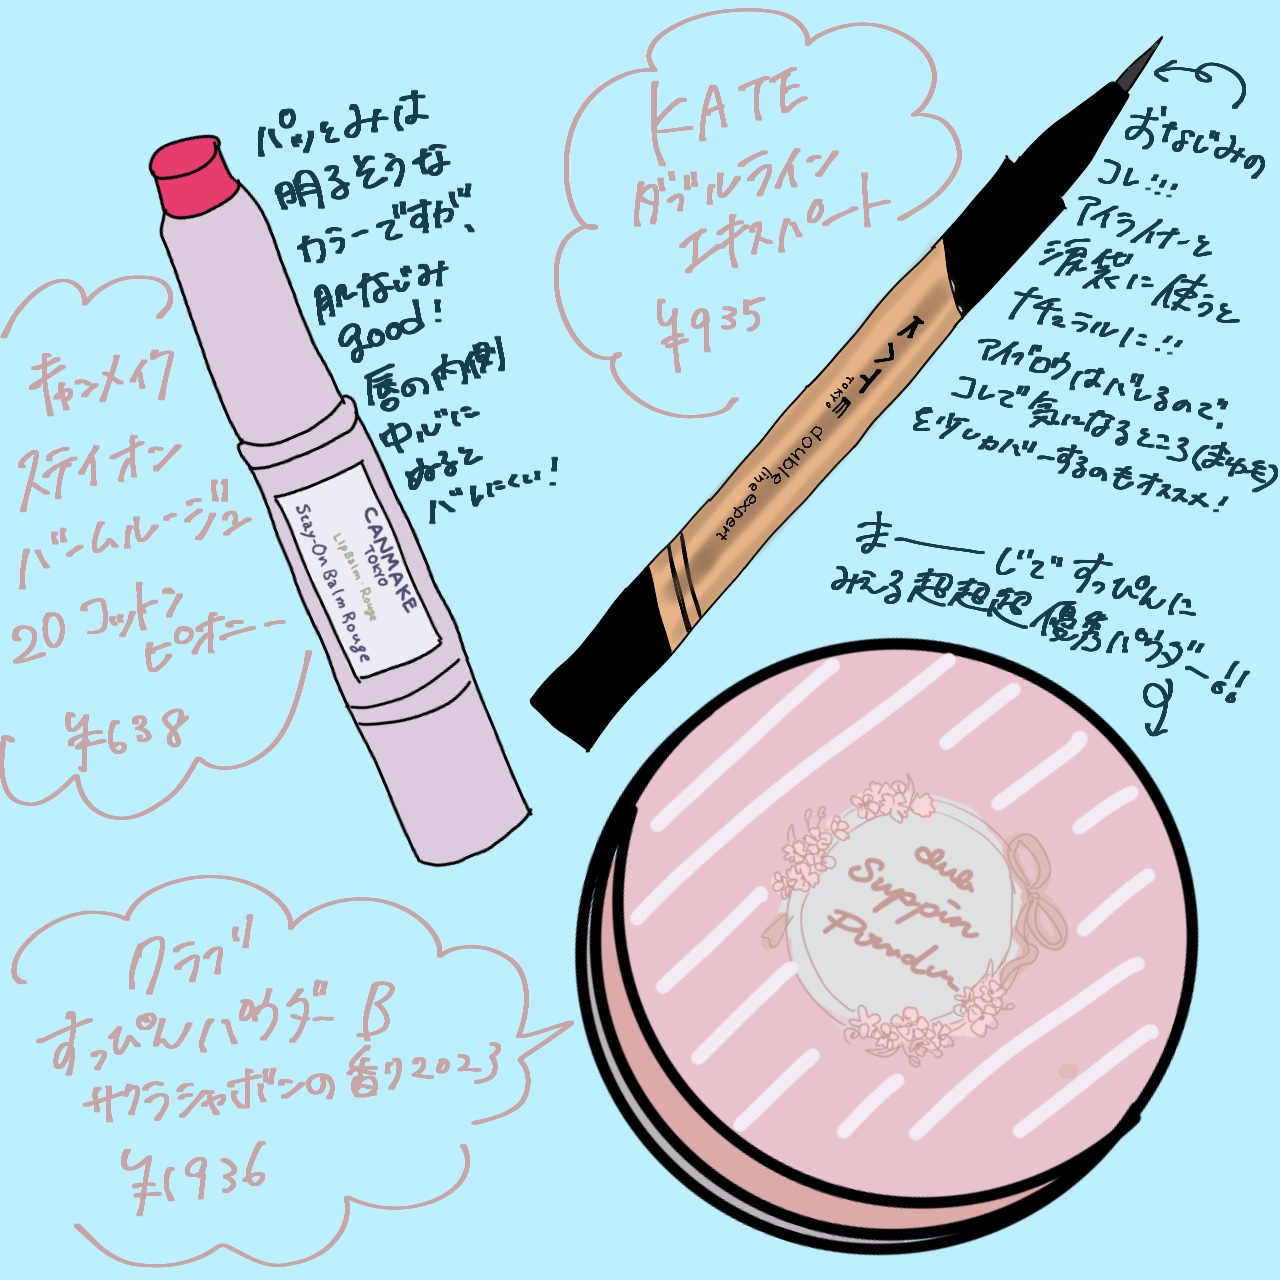 パッとみは
明るそうな
カラーですが、
肌なじみ
good!
唇の内側
中心に
ぬると
バレにくい!
キャンメイク
ステイオン
バームルージュ
20 コットン
ピオニー
¥638
CANMAKE
TOKYO
Lip Balm・Rouge
Stay-On Balm Rouge
KATE
ダブルライン
エキスパート
¥935
KATE
TOKYO
double
line expert
おなじみの
コレ!!!
アイライナーと
涙袋に使うと
ナチュラルに!!
アイブロウはバレるので、
コレで気になるところ(まゆ毛)
を少しカバーするのもオススメ!
まーーじですっぴんに
みえる超超超優秀パウダー!!
クラブ
すっぴんパウダー B
サクラシャボンの香り2023
¥1936
club
Suppin
Powder